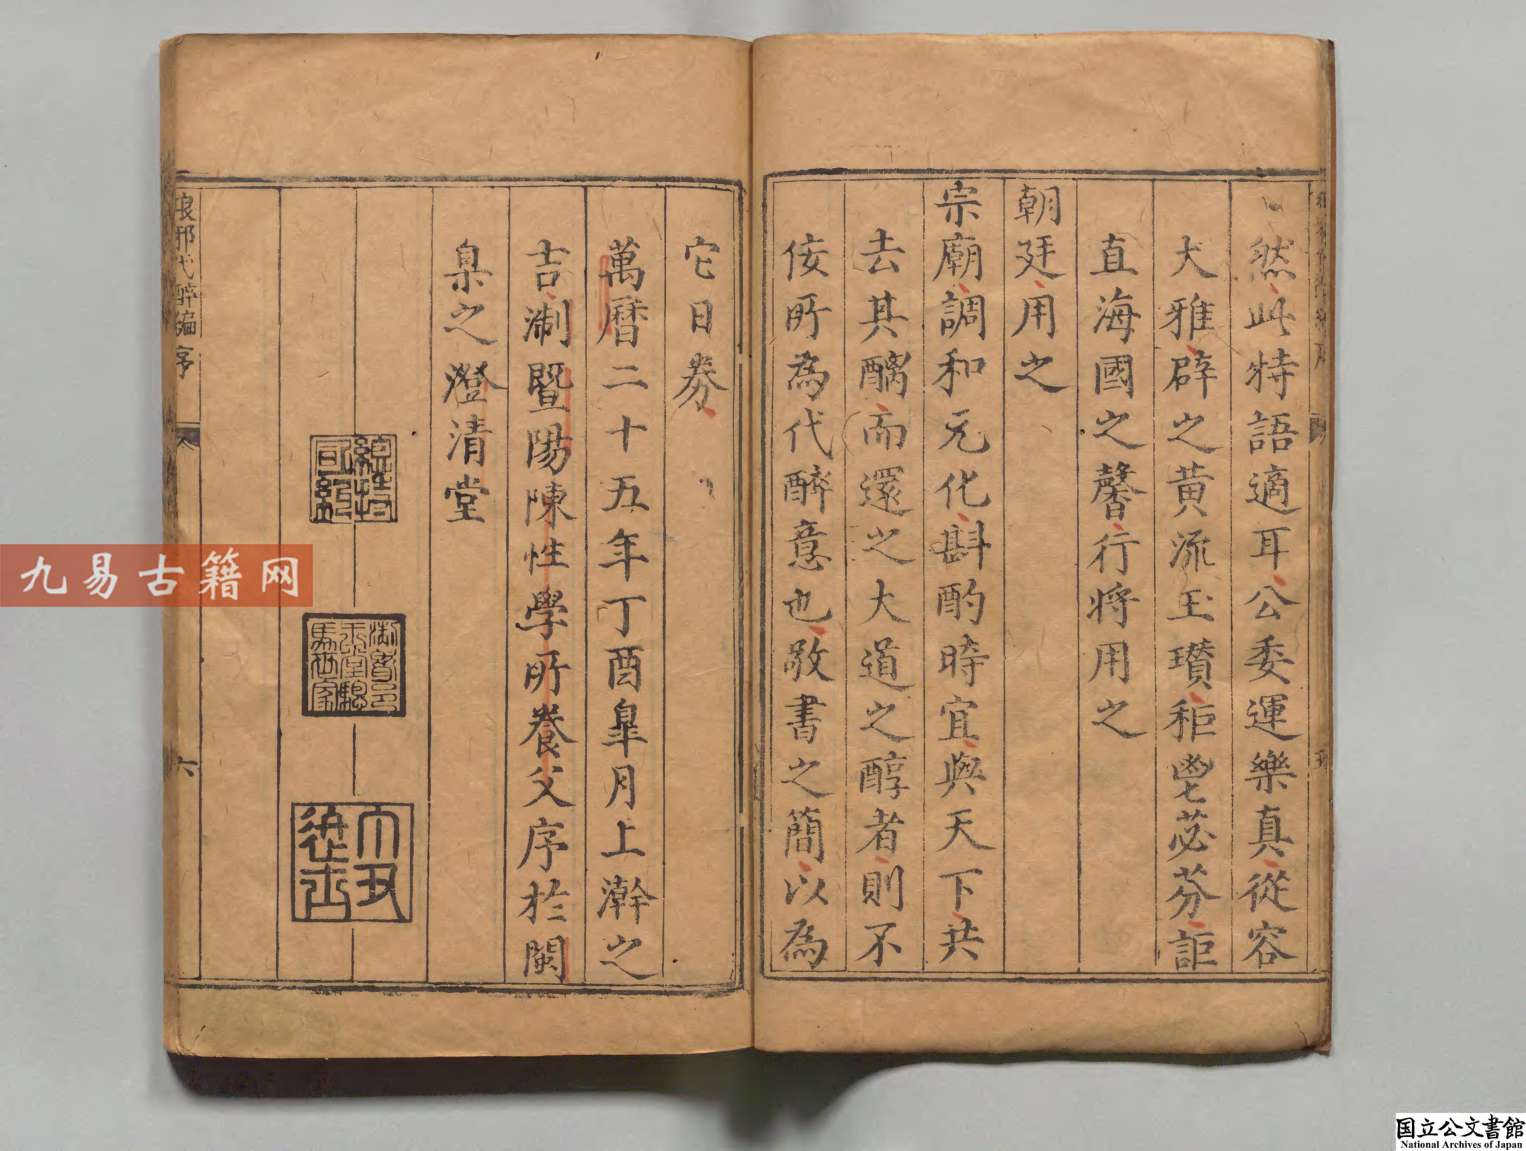 然此特語適耳公委運樂真從容
大雅辟之黄流玉瓚秬鬯苾芬詎
直海國之馨行將用之
朝廷用之
宗廟調和元化斟酌時宜與天下共
去其醨而還之大道之醇者則不
佞所為代醉意也敬書之簡以為
它日券
萬曆二十五年丁酉皐月上澣之
吉淛暨陽陳性學所養父序於閩
臬之澄清堂
琅邪代醉編序
六
九易古籍网
国立公文書館
National Archives of Japan